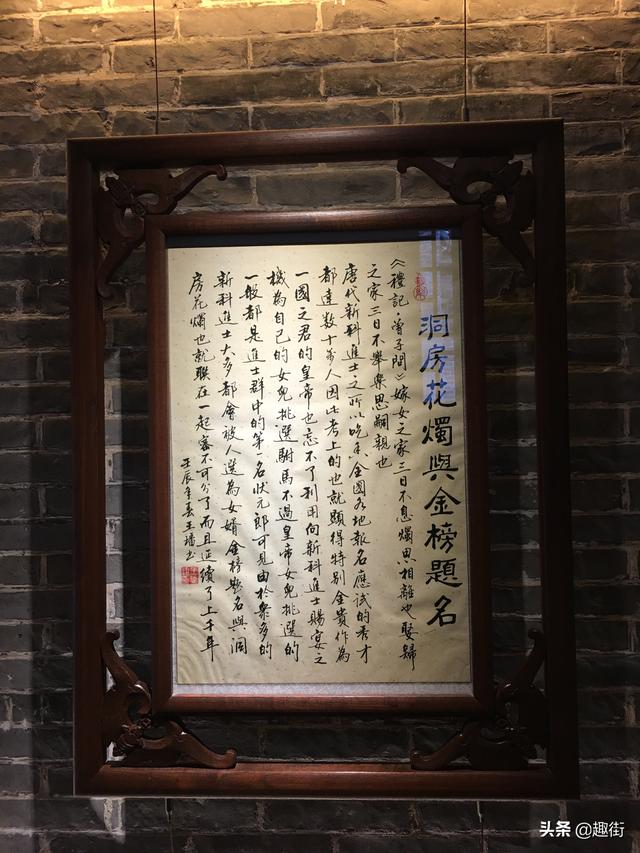 洞房花燭與金榜題名
《禮記·曾子問》嫁女之家三日不息燭思相離也娶婦
之家三日不舉樂思嗣親也
唐代新科進士之所以吃香全國各地報名應試的秀才
都達數十萬人因此考上的也就顯得特別金貴作為
一國之君的皇帝也忘不了利用向新科進士賜宴之
機為自己的女兒挑選駙馬不過皇帝女兒挑選的
一般都是進士群中的第一名狀元郎可見由於眾多的
新科進士大多都會被人選為女婿金榜題名與洞
房花燭也就聯在一起密不可分了而且延續了上千年
壬辰年春王書
头条 @趣街